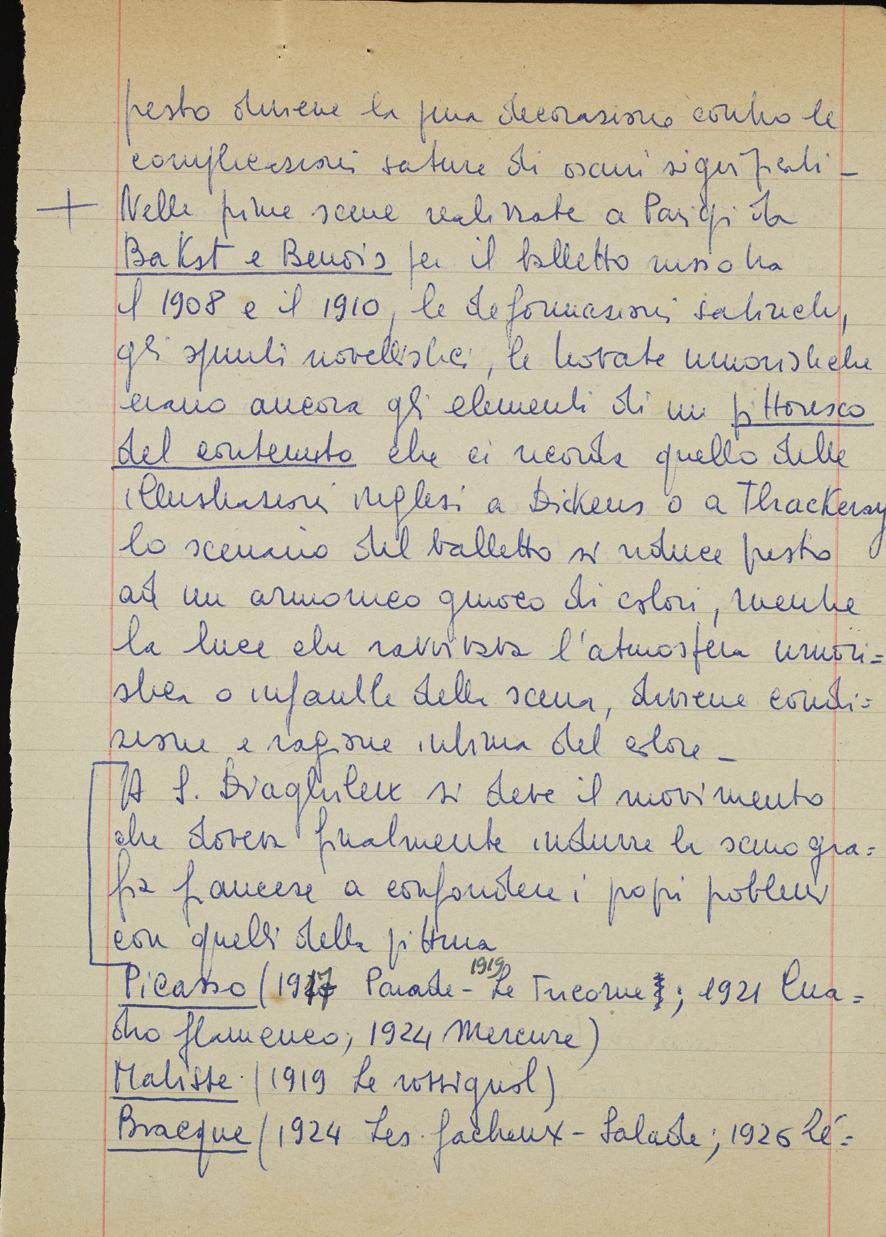 presto diviene la pura decorazione contro le
complicazioni sature di oscuri significati –
+ Nelle prime scene realizzate a Parigi da
Bakst e Benois per il balletto russo tra
il 1908 e il 1910, le deformazioni satiriche,
gli spunti novellistici, le trovate umoristiche
erano ancora gli elementi di un pittoresco
del contenuto che ci ricorda quello delle
illustrazioni inglesi a Dickens o a Thackeray
lo scenario del balletto si riduce presto
ad un armonico giuoco di colori, mentre
la luce che ravvivava l'atmosfera umori=
stica o infantile della scena, diviene condi=
zione e ragione intima del colore –
A S. Diaghilew si deve il movimento
che doveva finalmente indurre la scenogra=
fia francese a confondere i propri problemi
con quelli della pittura
Picasso (1917 Parade - 1919 Le Tricorne ; 1921 Qua=
dro flamenco; 1924 Mercure)
Matisse (1919 Le rossignol)
Bracque (1924 Les facheux - Salade; 1926 Zé=